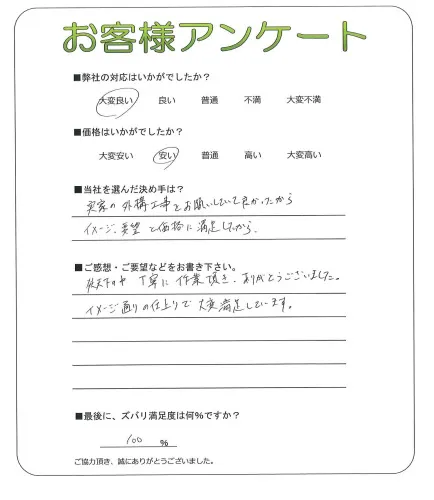 お客様アンケート
■弊社の対応はいかがでしたか?
大変良い 良い 普通 不満 大変不満
■価格はいかがでしたか?
大変安い 安い 普通 高い 大変高い
■当社を選んだ決め手は?
実家の外構工事をお願いしていて良かったから
イメージ、要望と価格に満足したから。
■ご感想・ご要望などをお書き下さい。
炎天下の中 丁寧に作業頂き、ありがとうございました。
イメージ通りの仕上りで大変満足しています。
■最後に、ズバリ満足度は何%ですか?
100 %
ご協力頂き、誠にありがとうございました。